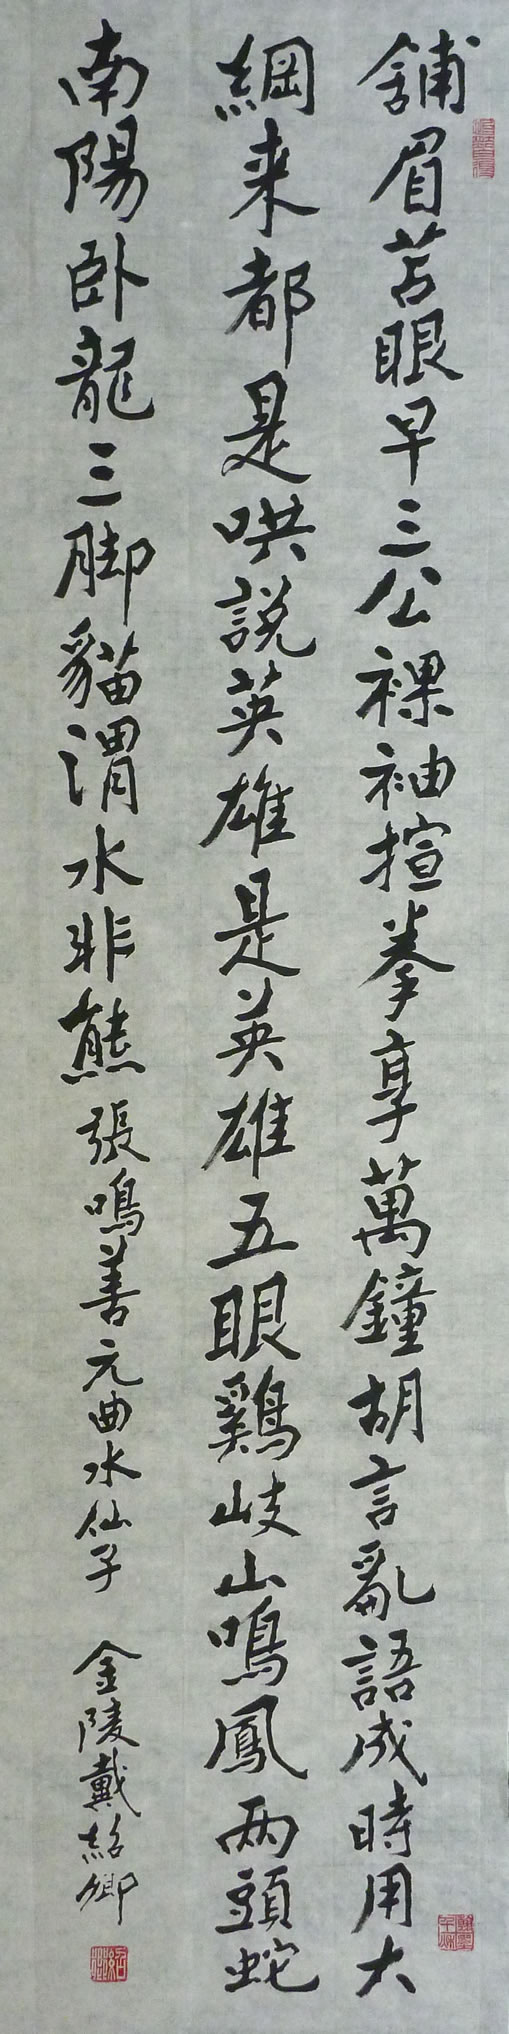 舖眉苫眼早三公裸袖揎拳享萬鐘胡言亂語成時用大
綱来都是哄說英雄是英雄五眼鷄岐山鳴鳳兩頭蛇
南陽卧龍三脚貓渭水非熊張鳴善元曲水仙子 金陵戴紹卿